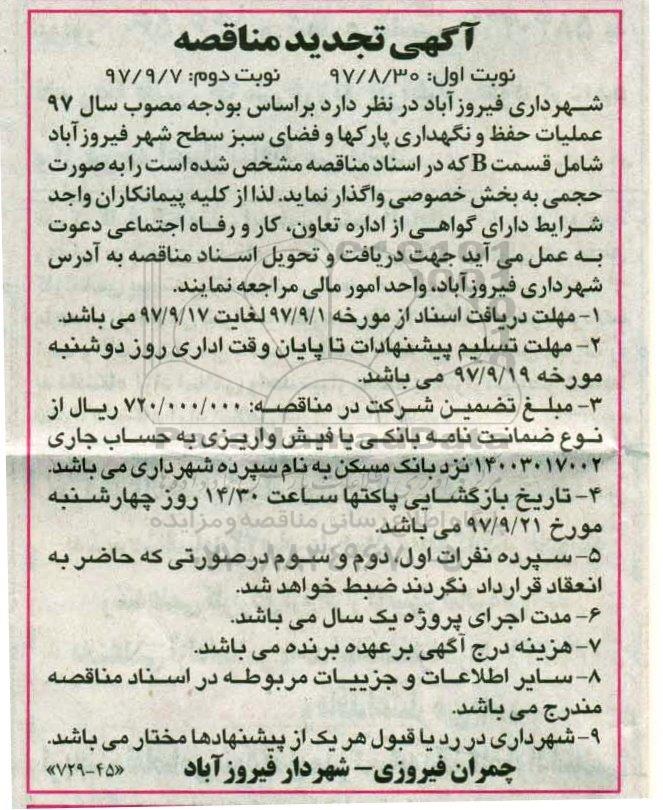 آگهی تجدید مناقصه
نوبت اول: ۹۷/۸/۳۰ نوبت دوم: ۹۷/۹/۷
شهرداری فیروزآباد در نظر دارد براساس بودجه مصوب سال ۹۷
عملیات حفظ و نگهداری پارکها و فضای سبز سطح شهر فیروزآباد
شامل قسمت B که در اسناد مناقصه مشخص شده است را به صورت
حجمی به بخش خصوصی واگذار نماید. لذا از کلیه پیمانکاران واجد
شرایط دارای گواهی از اداره تعاون، کار و رفاه اجتماعی دعوت
به عمل می آید جهت دریافت و تحویل اسناد مناقصه به آدرس
شهرداری فیروزآباد، واحد امور مالی مراجعه نمایند.
۱- مهلت دریافت اسناد از مورخه ۹۷/۹/۱ لغایت ۹۷/۹/۱۷ می باشد.
۲- مهلت تسلیم پیشنهادات تا پایان وقت اداری روز دوشنبه
مورخه ۹۷/۹/۱۹ می باشد.
۳- مبلغ تضمین شرکت در مناقصه: ۷۲۰/۰۰۰/۰۰۰ ریال از
نوع ضمانت نامه بانکی یا فیش واریزی به حساب جاری
۱۴۰۰۳۰۱۷۰۰۲ نزد بانک مسکن به نام سپرده شهرداری می باشد.
۴- تاریخ بازگشایی پاکتها ساعت ۱۴/۳۰ روز چهارشنبه
مورخ ۹۷/۹/۲۱ می باشد.
۵- سپرده نفرات اول، دوم و سوم درصورتی که حاضر به
انعقاد قرارداد نگردند ضبط خواهد شد.
۶- مدت اجرای پروژه یک سال می باشد.
۷- هزینه درج آگهی برعهده برنده می باشد.
۸- سایر اطلاعات و جزییات مربوطه در اسناد مناقصه
مندرج می باشد.
۹- شهرداری در رد یا قبول هر یک از پیشنهادها مختار می باشد.
چمران فیروزی- شهردار فیروزآباد «۷۲۹-۴۵»